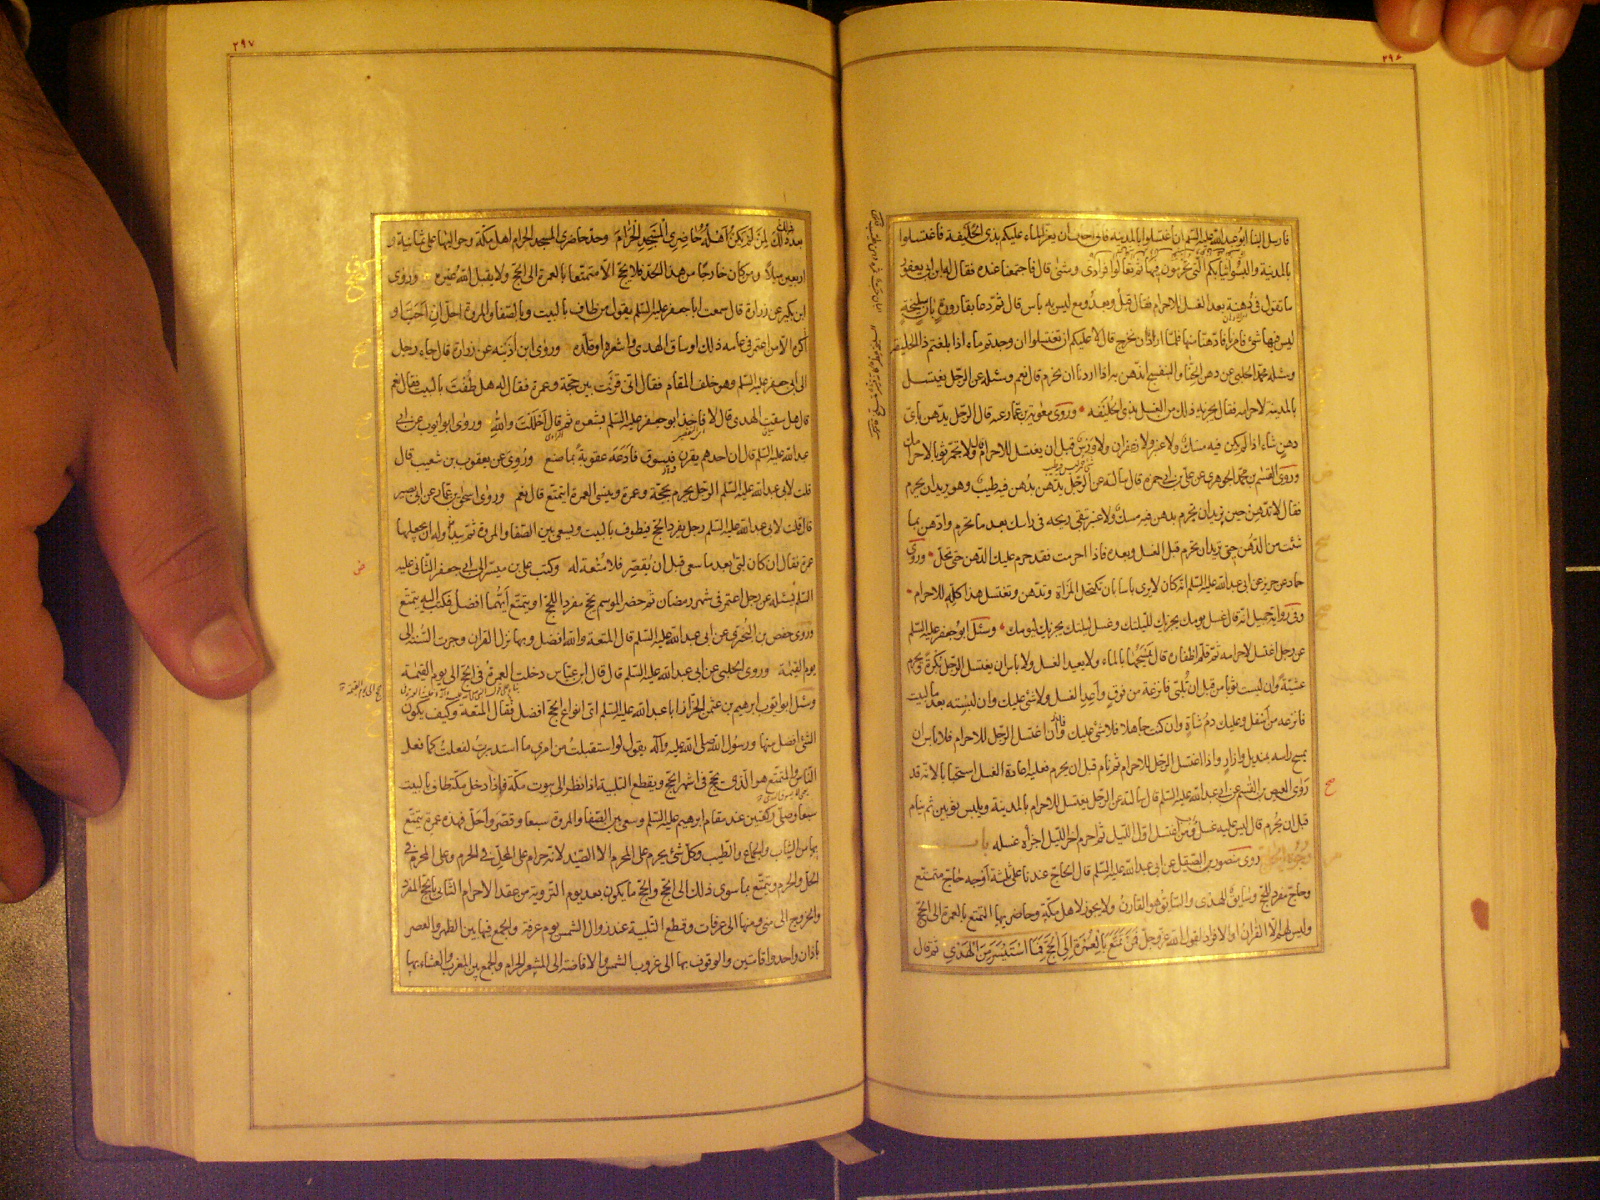 ٢٩٨
فارسل الينا ابو عبد الله عليه السلم ان اغتسلوا بالمدينة فانى اخاف ان يعز الماء عليكم بذى الحليفة فاغتسلوا
بالمدينة والبسوا ثيابكم التى تحرمون فيها ثم تعالوا فرادى ومثنى قال فاجتمعنا عنده فقال له ابن ابى يعفور
ما تقول فى دهنة بعد الغسل للاحرام فقال قبل وبعد ومع ليس به باس قال ثم دعا بقارورة بان سليخة
ليس فيها شئ فامرنا فادهنا منها فلما اردنا ان نخرج قال لا عليكم ان تغتسلوا ان وجدتم ماء اذا بلغتم ذا الحليفة
وسئله محمد الحلبى عن دهن الحناء والبنفسج اندهن به اذا اردنا ان نحرم قال نعم وسئله عن الرجل يغتسل
بالمدينة لاحرامه فقال يجزيه ذلك من الغسل بذى الحليفة وروى معوية بن عمار عنه قال الرجل يدهن باى
دهن شاء اذا لم يكن فيه مسك ولا عنبر ولا زعفران ولا ورس قبل ان يغتسل للاحرام قال ولا تجمر ثوبا لاحرامك
وروى القسم بن محمد الجوهرى عن على بن ابى حمزة قال سالته عن الرجل يدهن بدهن فيه طيب وهو يريد ان يحرم
فقال لا تدهن حين تريد ان تحرم بدهن فيه مسك ولا عنبر تبقى ريحه فى راسك بعد ما تحرم وادهن بما
شئت من الدهن حين تريد ان تحرم قبل الغسل وبعده فاذا احرمت فقد حرم عليك الدهن حتى تحل وروى
حماد عن حريز عن ابى عبد الله عليه السلم انه كان لا يرى باسا بان تكتحل المراة وتدهن وتغتسل بعد هذا كله للاحرام
وفى رواية جميل انه قال غسل يومك يجزيك لليلتك وغسل ليلتك يجزيك ليومك وسئل ابو جعفر عليه السلم
عن رجل اغتسل لاحرامه ثم قلم اظفاره قال يمسحها بالماء ولا يعيد الغسل ولا باس ان يغتسل الرجل بكرة ويحرم
عشية وان لبست ثوبا من قبل ان تلبى فانزعه من فوق واعد الغسل ولا شئ عليك وان لبسته بعد ما لبيت
فانزعه من اسفل وعليك دم شاة وان كنت جاهلا فلا شئ عليك واذا اغتسل الرجل للاحرام فلا باس ان
يمسح راسه بمنديل وازار واذا اغتسل الرجل للاحرام ثم نام قبل ان يحرم فعليه اعادة الغسل استحبابا لانه قد
روى العيص بن القسم عن ابى عبد الله عليه السلم قال سالته عن الرجل يغتسل للاحرام بالمدينة ويلبس ثوبين ثم ينام
قبل ان يحرم قال ليس عليه غسل ومن اغتسل اول الليل ثم احرم اخر الليل اجزأه غسله باب
وجوه الحج روى منصور بن الصيقل عن ابى عبد الله عليه السلم قال الحاج عندنا على ثلثة اوجه حاج متمتع
وحاج مفرد للحج وسايق للهدى والسايق هو القارن ولا يجوز لاهل مكة وحاضريها التمتع بالعمرة الى الحج
وليس لهم الا القران او الافراد لقول الله عز وجل فمن تمتع بالعمرة الى الحج فما استيسر من الهدى ثم قال
٢٩٧
بعد ذلك ذلك لمن لم يكن اهله حاضرى المسجد الحرام وحد حاضرى المسجد الحرام اهل مكة وحواليها على ثمانية و
اربعين ميلا ومن كان خارجا من هذا الحد فلا يحج الا متمتعا بالعمرة الى الحج ولا يقبل الله غيره منه وروى
ابن بكير عن زرارة قال سمعت ابا جعفر عليه السلم يقول من طاف بالبيت وبالصفا والمروة احل ان احب او
كره الا من اعتمر فى عامه ذلك او ساق الهدى واشعره او قلده وروى ابن اذينه عن زرارة قال جاء رجل
الى ابى جعفر عليه السلم وهو خلف المقام فقال انى قرنت بين حجة وعمرة فقال له هل طفت بالبيت فقال نعم
قال هل سقت الهدى قال لا فاخذ ابو جعفر عليه السلم بشعره ثم قال احللت والله وروى ابو ايوب عن ابى
عبد الله عليه السلم قال ان احدهم يقرن ويسوق فادعه عقوبة بما صنع وروى عن يعقوب بن شعيب قال
قلت لابى عبد الله عليه السلم الرجل يحرم بحجة وعمرة وينسى العمرة ايتمتع قال نعم وروى اسحق بن عمار عن ابى بصير
قال قلت لابى عبد الله عليه السلم رجل يفرد الحج فيطوف بالبيت ويسعى بين الصفا والمروة ثم يبدو له ان يجعلها
عمرة فقال ان كان لبى بعد ما سعى قبل ان يقصر فلا متعة له وكتب على بن ميسر الى ابى جعفر الثانى عليه
السلم يسئله عن رجل اعتمر فى شهر رمضان ثم حضر الموسم يحج مفردا للحج او يتمتع ايهما افضل فكتب اليه يتمتع
وروى حفص بن البخترى عن ابى عبد الله عليه السلم قال المتعة والله افضل وبها نزل القران وجرت السنة الى
يوم القيمة وروى الحلبى عن ابى عبد الله عليه السلم قال قال ابن عباس دخلت العمرة فى الحج الى يوم القيمة
وسئل ابو ايوب ابرهيم بن عثمن الخزاز ابا عبد الله عليه السلم اى انواع الحج افضل فقال المتعة وكيف يكون
الشئ افضل منها ورسول الله صلى الله عليه واله يقول لو استقبلت من امرى ما استدبرت لفعلت كما فعل
الناس والمتمتع هو الذى يحج فى اشهر الحج ويقطع التلبية اذا نظر الى بيوت مكة فاذا دخل مكة طاف بالبيت
سبعا وصلى ركعتين عند مقام ابرهيم عليه السلم وسعى بين الصفا والمروة سبعا وقصر واحل فهذه عمرة يتمتع
بها من الثياب والجماع والطيب وكل شئ يحرم على المحرم الا الصيد لانه حرام على المحل فى الحرم وعلى المحرم فى
الحل والحرم ويتمتع بما سوى ذلك الى الحج والحج ما يكون بعد يوم التروية من عقد الاحرام الثانى بالحج المفرد
والخروج الى منى ومنها الى عرفات وقطع التلبية عند زوال الشمس يوم عرفة والجمع فيها بين الظهر والعصر
باذان واحد واقامتين والوقوف بها الى غروب الشمس والافاضة الى المشعر الحرام والجمع بين المغرب والعشاء بها